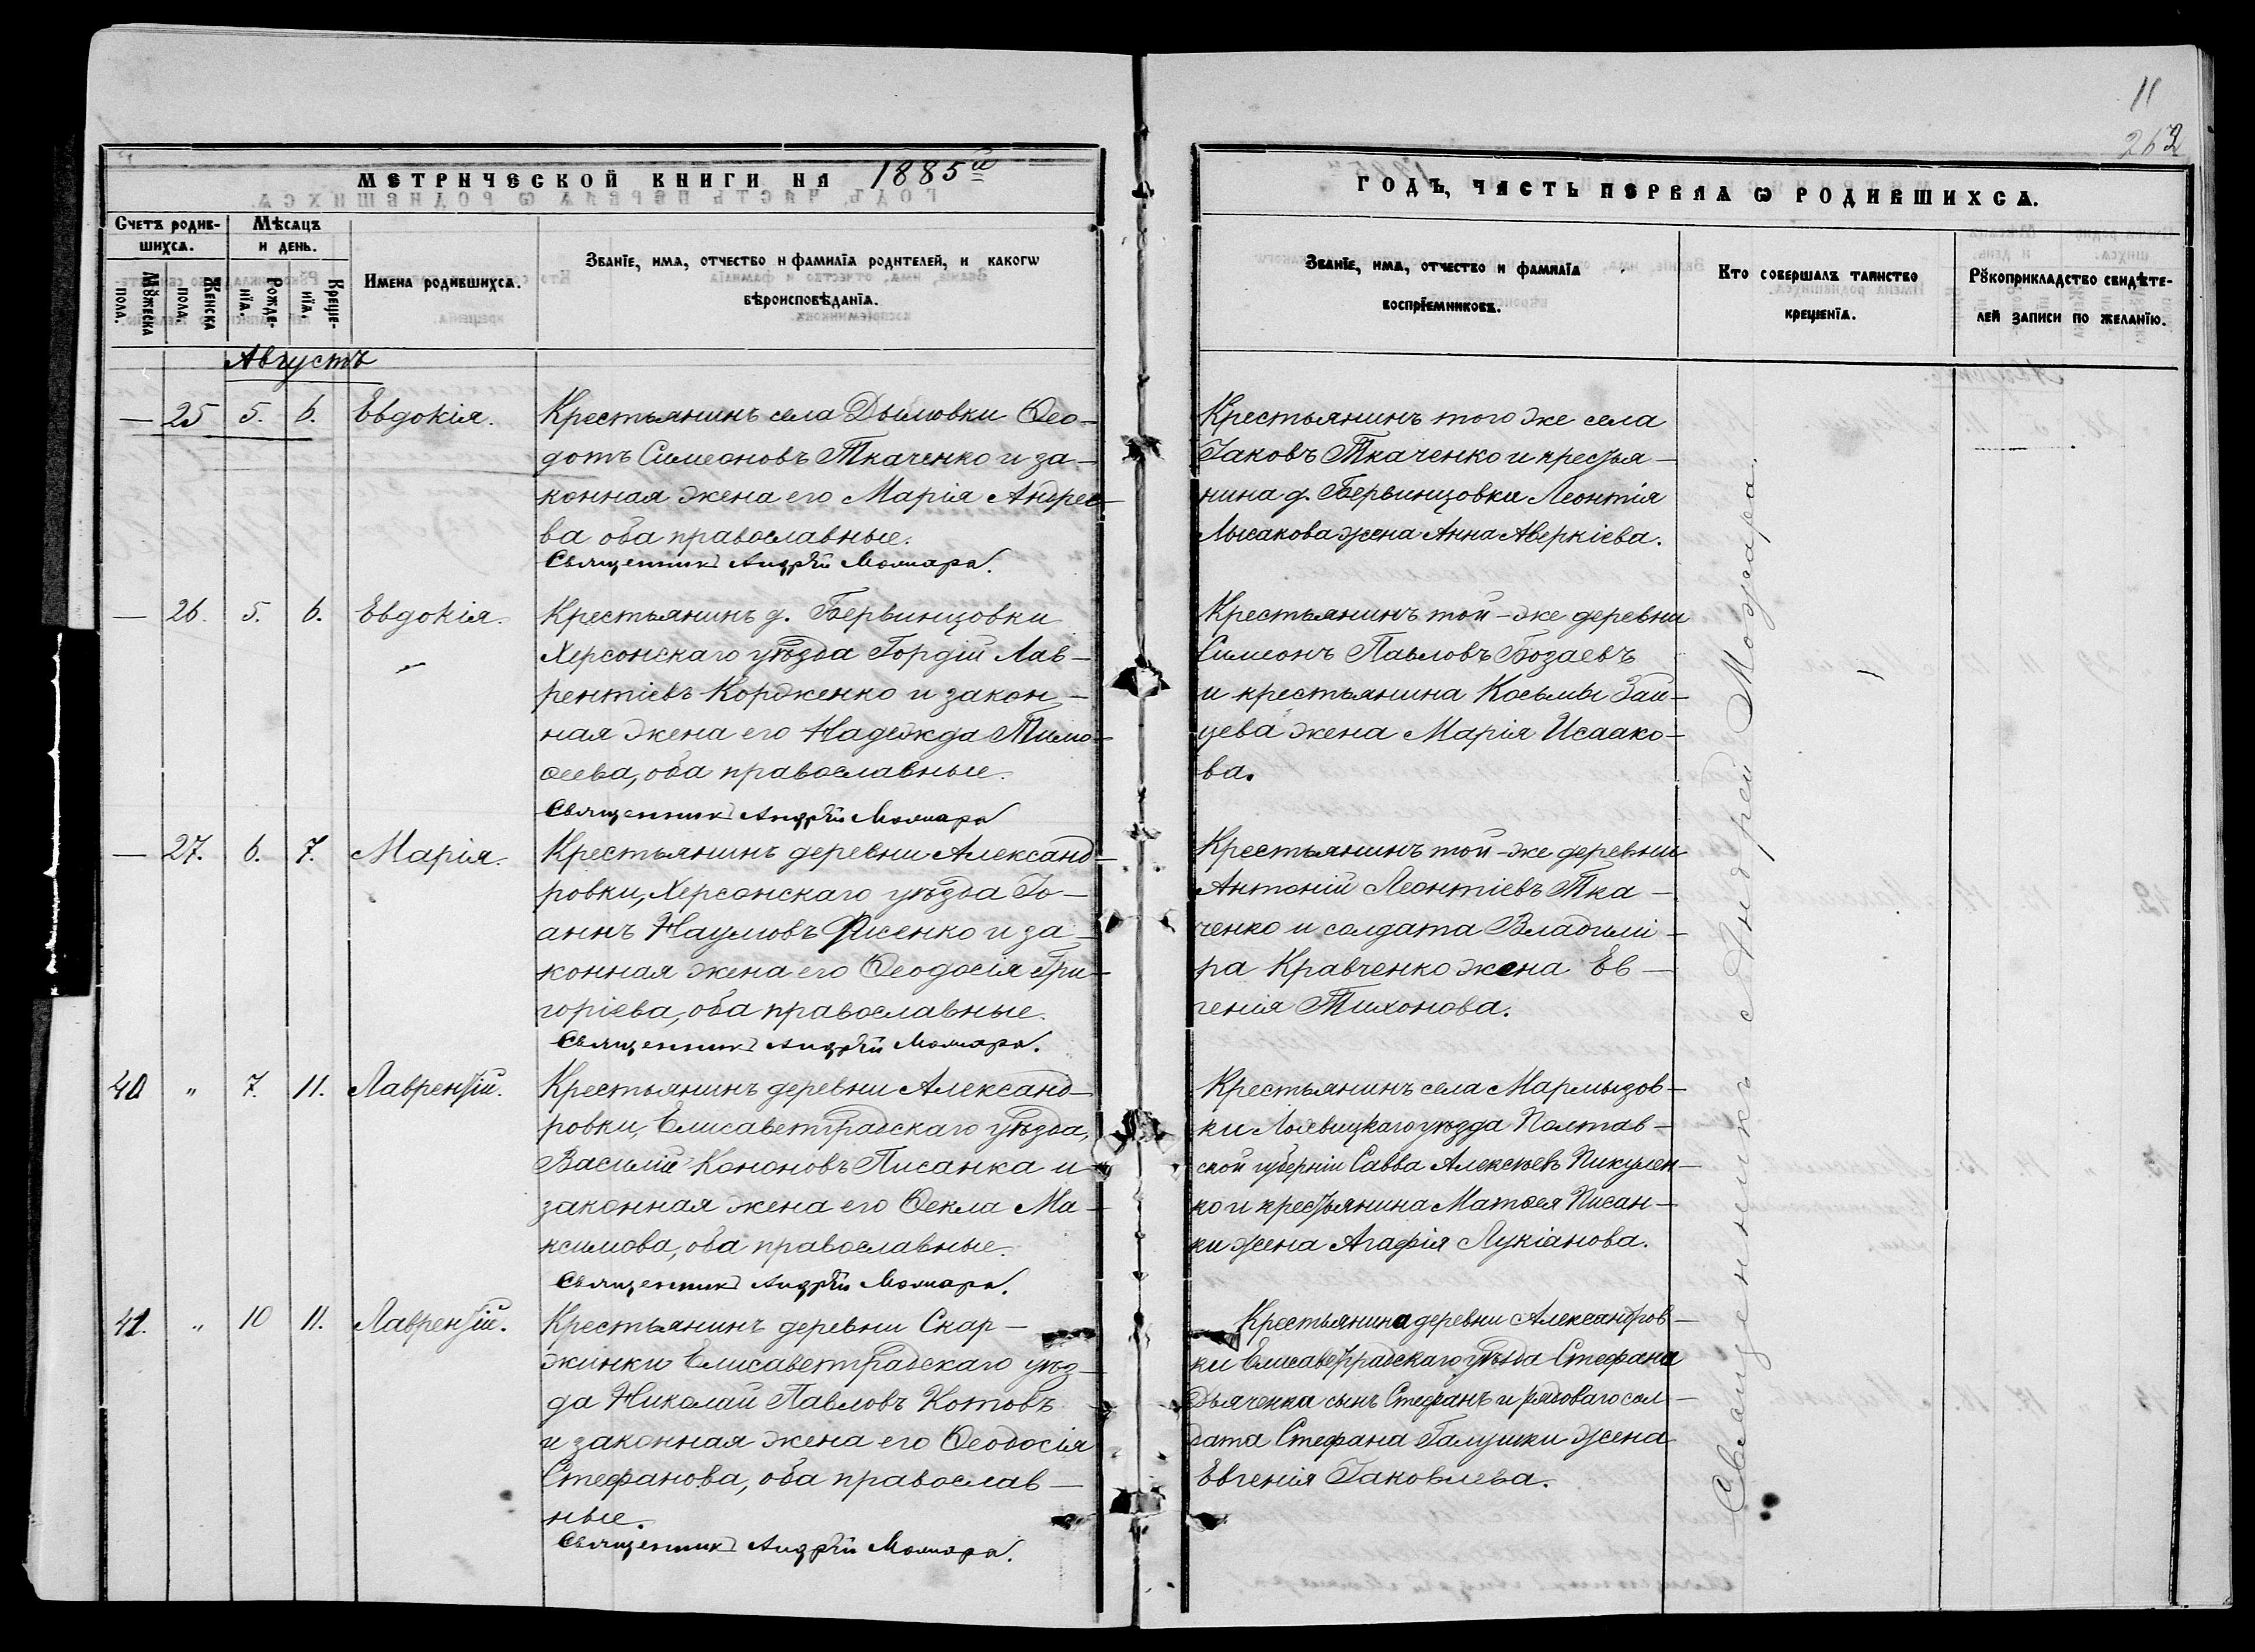 11
263
МЕТРИЧЕСКОЙ КНИГИ НА 1885й
ГОДЪ, ЧАСТЬ ПЕРВАѦ Ѡ РОДИВШИХСѦ.
Счетъ родив-
шихсѧ.
Мꙋжеска
пола.
Женска
пола.
Мѣсѧцъ
и день.
Рожде-
нїѧ.
Креще-
нїѧ.
Имена родившихсѧ.
Званїе, имѧ, отчество и фамилїѧ родителей, и какогѡ
вѣроисповѣданїѧ.
Званїе, имѧ, отчество и фамилїѧ
воспрїемниковъ.
Кто совершалъ таинство
крещенїѧ.
Рꙋкоприкладство свидѣте-
лей записи по желанїю.
Августъ
— 25 5. 6. Евдокія.
Крестьянинъ села Дымовки Ѳео-
дотъ Симеоновъ Ткаченко и за-
конная жена его Марія Андрее-
ва оба православные.
Священникъ Андрей Можара.
Крестьянинъ того же села
Іаковъ Ткаченко и крестья-
нина д. Бервинцовки Леонтія
Лысакова жена Анна Аверкіева.
— 26. 5. 6. Евдокія.
Крестьянинъ д. Бервинцовки
Херсонскаго уѣзда Гордій Лав-
рентіевъ Кордженко и закон-
ная жена его Надежда Тимо-
ѳеева, оба православные.
Священникъ Андрей Можара
Крестьянинъ той-же деревни
Симеонъ Павловъ Бозаевъ
и крестьянина Косьмы Зай-
цева жена Марія Исаако-
ва.
— 27. 6. 7. Марія.
Крестьянинъ деревни Александ-
ровки, Херсонскаго уѣзда Іо-
аннъ Наумовъ Фисенко и за-
конная жена его Ѳеодосія Гри-
горіева, оба православные.
Священникъ Андрей Можара.
Крестьянинъ той-же деревни
Антоній Леонтіевъ Тка-
ченко и солдата Владими-
ра Кравченко жена Ев-
генія Тихонова.
40 " 7. 11. Лаврентій.
Крестьянинъ деревни Александ-
ровки, Елисаветградскаго уѣзда,
Василій Кононовъ Писанка и
законная жена его Ѳекла Ма-
ксимова, оба православные.
Священникъ Андрей Можара.
Крестьянинъ села Мармызов-
ки Лохвицкаго уѣзда Полтав-
ской губерніи Савва Алексѣевъ Пикулен-
ко и крестьянина Матѳея Писан-
ки жена Агафія Лукіанова.
41. " 10 11. Лаврентій.
Крестьянинъ деревни Скар-
жинки Елисаветградскаго уѣз-
да Николай Павловъ Котовъ
и законная жена его Ѳеодосія
Стефанова, оба православ-
ные.
Священникъ Андрей Можара.
Крестьянина деревни Александров-
ки Елисаветградскаго уѣзда Стефана
Дьяченка сынъ Стефанъ и рядоваго сол-
дата Стефана Галушки жена
Евгенія Іаковлева.
Священникъ Андрей Можара.